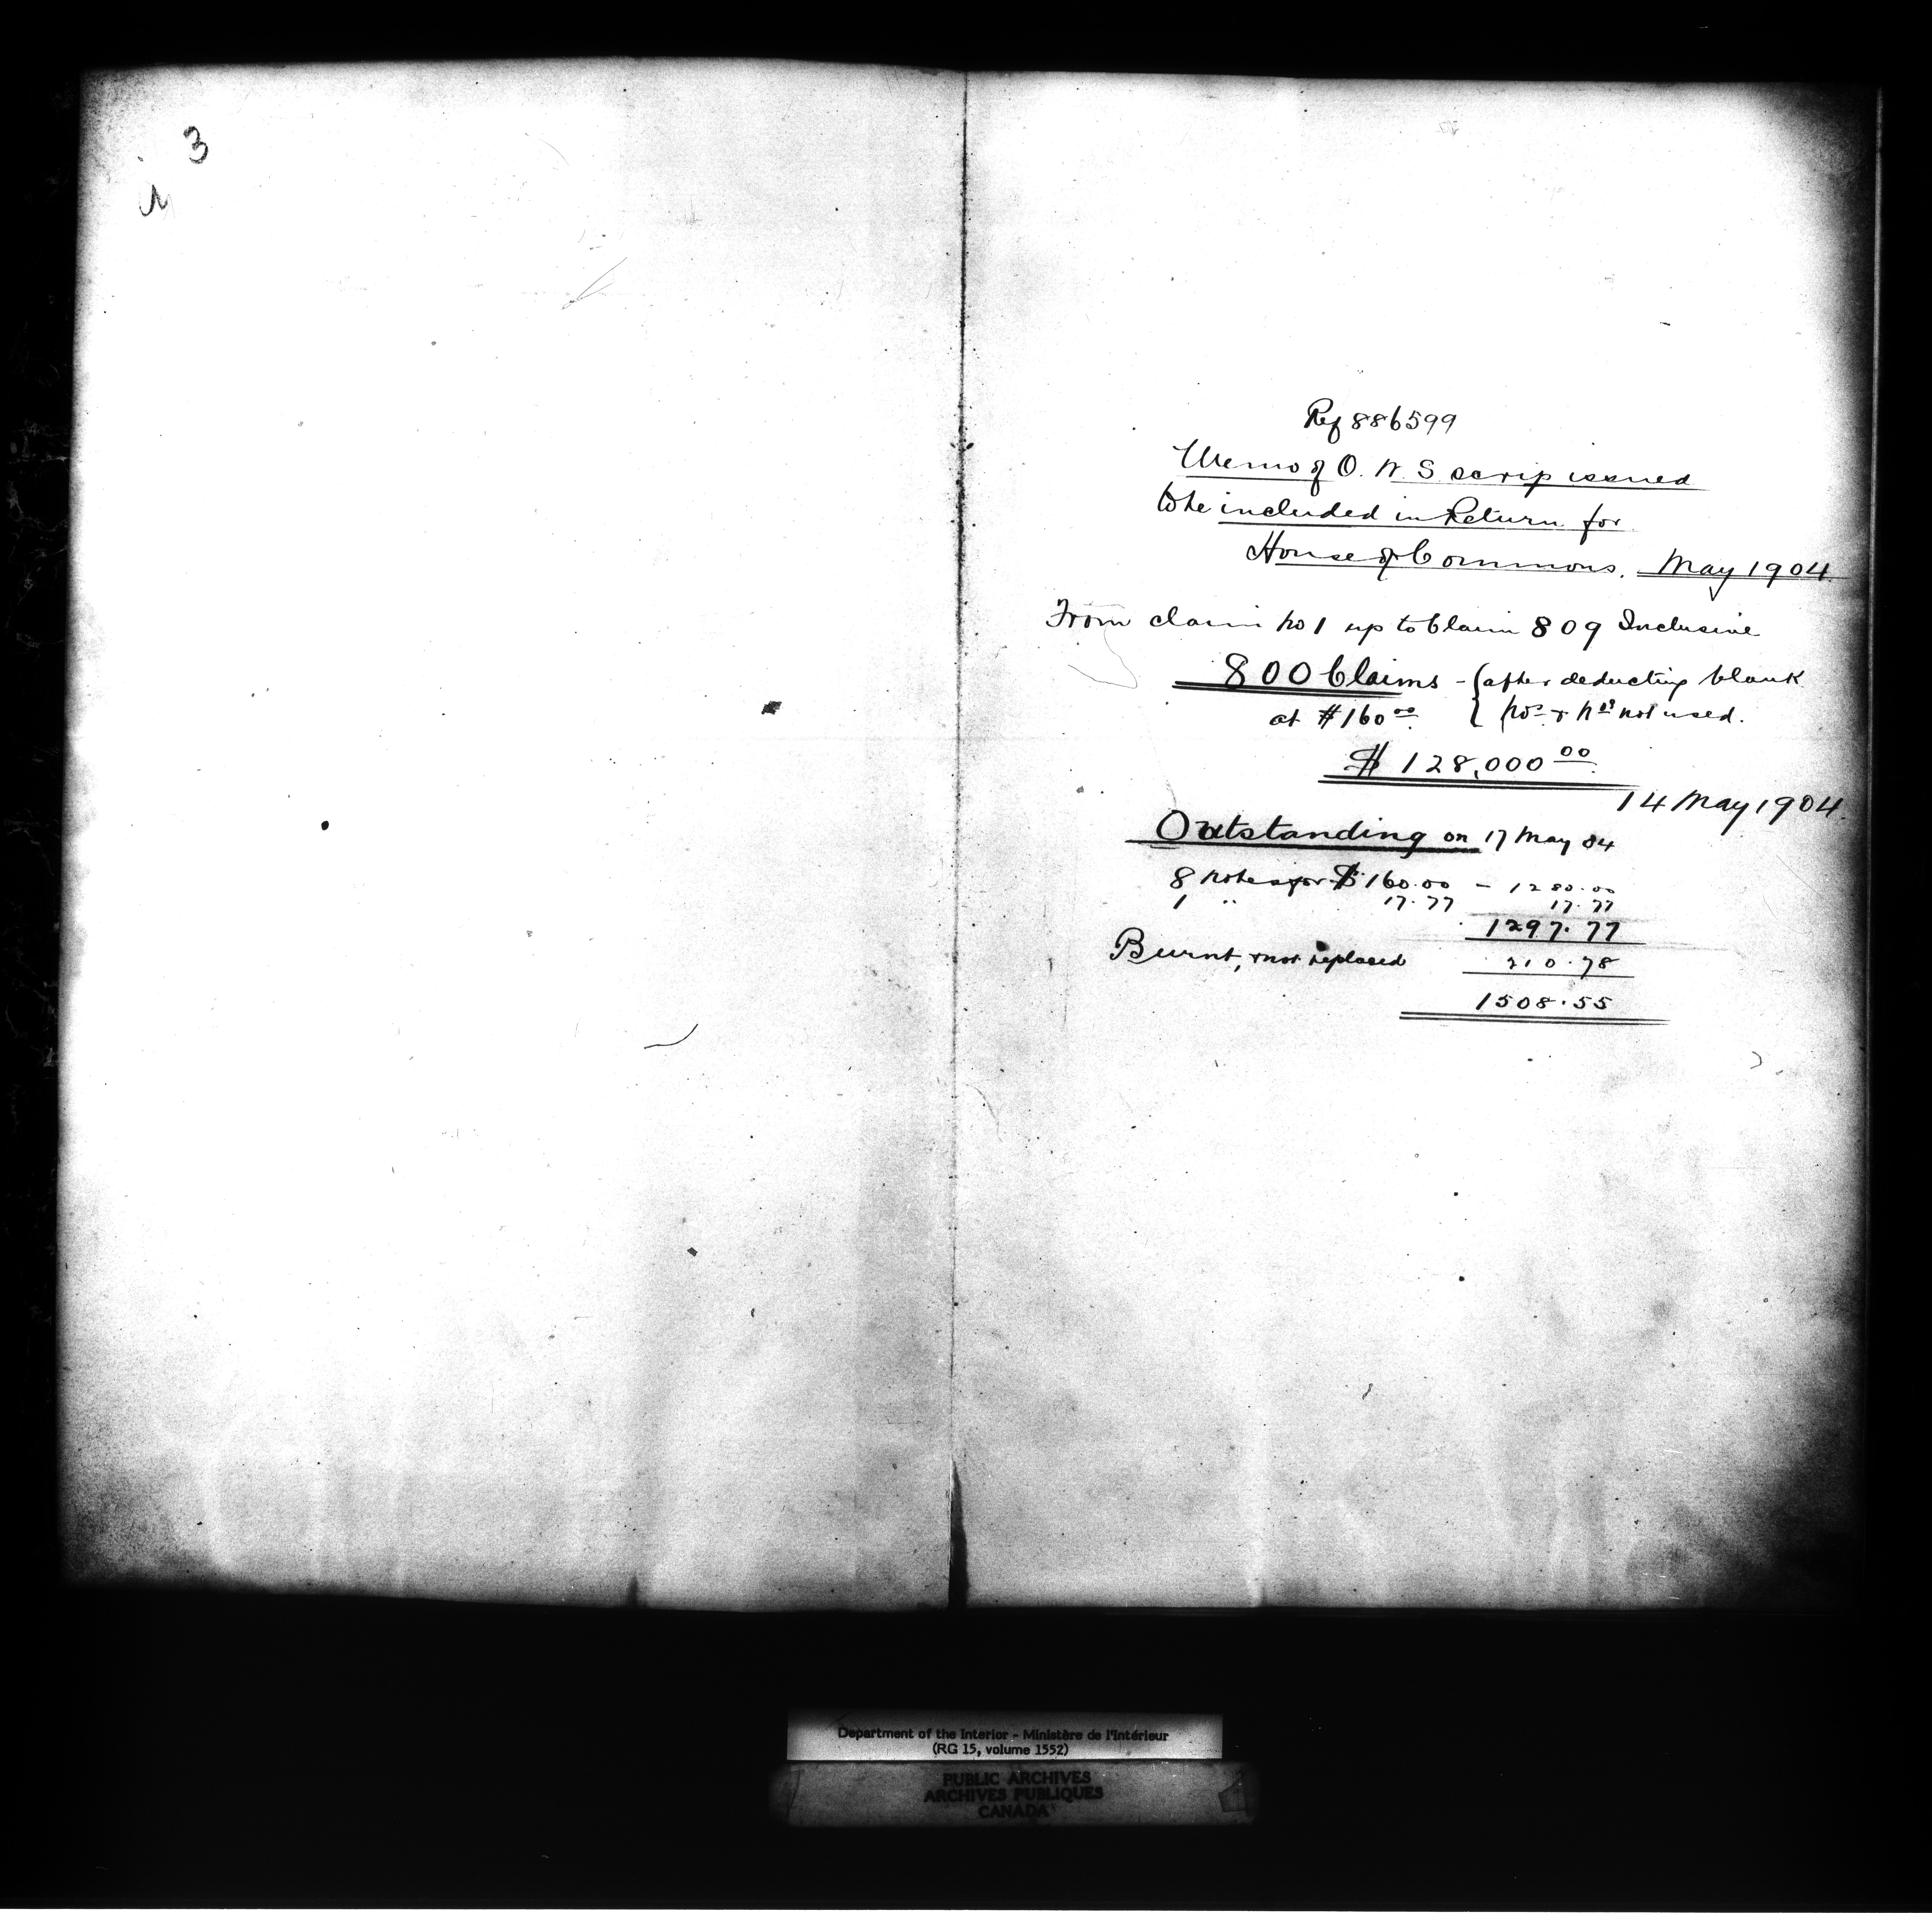 3
Ref 886599
Memo of O. W. S scrip issued
to be included in Return for
House of Commons. May 1904.
From claim No 1 up to Claim 809 Inclusive
800 Claims - (after deducting blank
at $160 00 Nos & Nos not used.
$128,000 00
14 May 1904.
Outstanding on 17 May 04
8 Notes for $160.00 - 1280.00
1 " 17.77 17.77
1297.77
Burnt, & not replaced 210.78
1508.55
Department of the Interior - Ministère de l'Intérieur
(RG 15, volume 1552)
PUBLIC ARCHIVES
ARCHIVES PUBLIQUES
CANADA